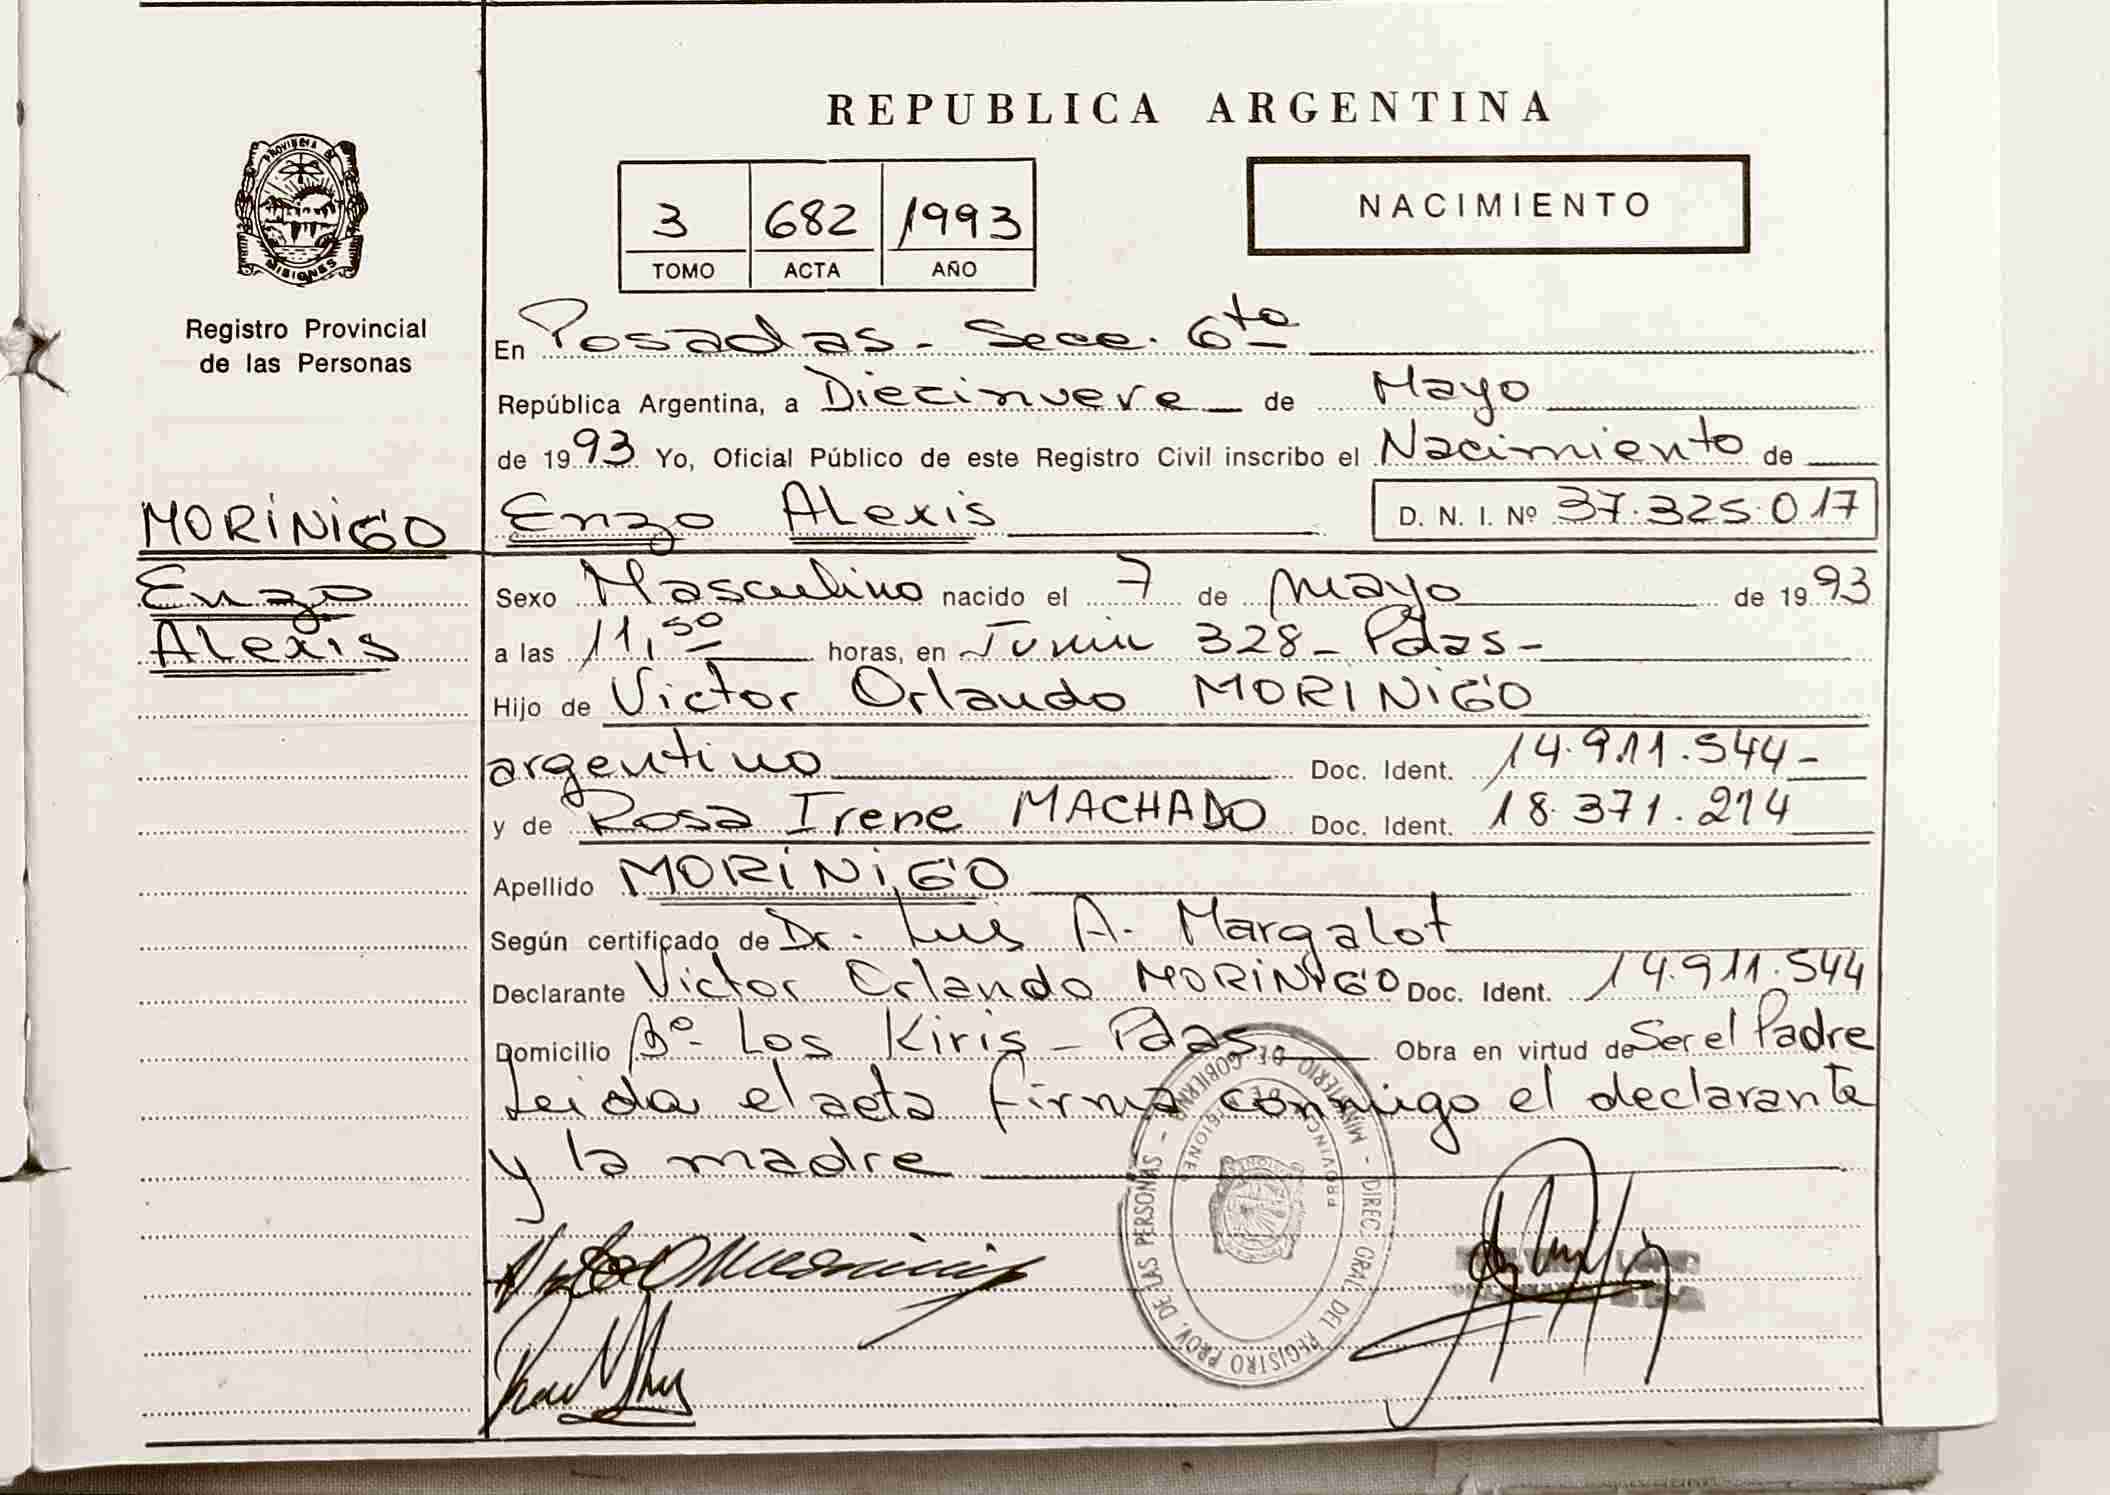 REPUBLICA ARGENTINA
PROVINCIA DE
MISIONES
Registro Provincial
de las Personas
3 682 1993
TOMO ACTA AÑO
NACIMIENTO
En Posadas - Secc. 6ta
República Argentina, a Diecinueve de Mayo
de 1993 Yo, Oficial Público de este Registro Civil inscribo el Nacimiento de
MORINIGO Enzo Alexis D. N. I. Nº 37.325.017
Enzo
Alexis
Sexo Masculino nacido el 7 de mayo de 1993
a las 11,50 horas, en Junin 328 - Pdas -
Hijo de Victor Orlando MORINIGO
argentino Doc. Ident. 14.911.544-
y de Rosa Irene MACHADO Doc. Ident. 18.371.214
Apellido MORINIGO
Según certificado de Dr. Luis A. Margalot
Declarante Victor Orlando MORINIGO Doc. Ident. 14.911.544
Domicilio Bº Los Kiris - Pdas. Obra en virtud de Ser el Padre
Leida el acta firma conmigo el declarante
y la madre
MINISTERIO DE GOBIERNO - DIREC. GRAL. DEL REGISTRO PROV. DE LAS PERSONAS -
PROVINCIA DE MISIONES